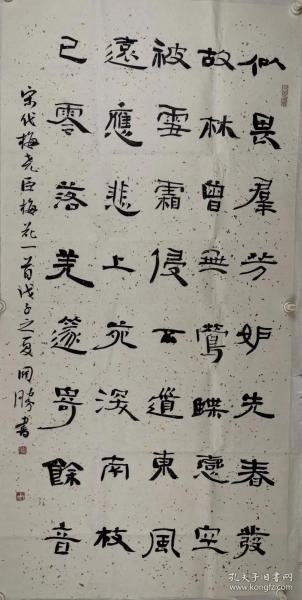 似畏羣芳妒先春發
故林曾無鶯蝶戀空
被雪霜侵不道東風
遠應悲上苑深南枝
已零落羌篴寄餘音
宋代梅尧臣梅花一首戊子之夏 書
孔夫子旧书网
www.kongfz.com